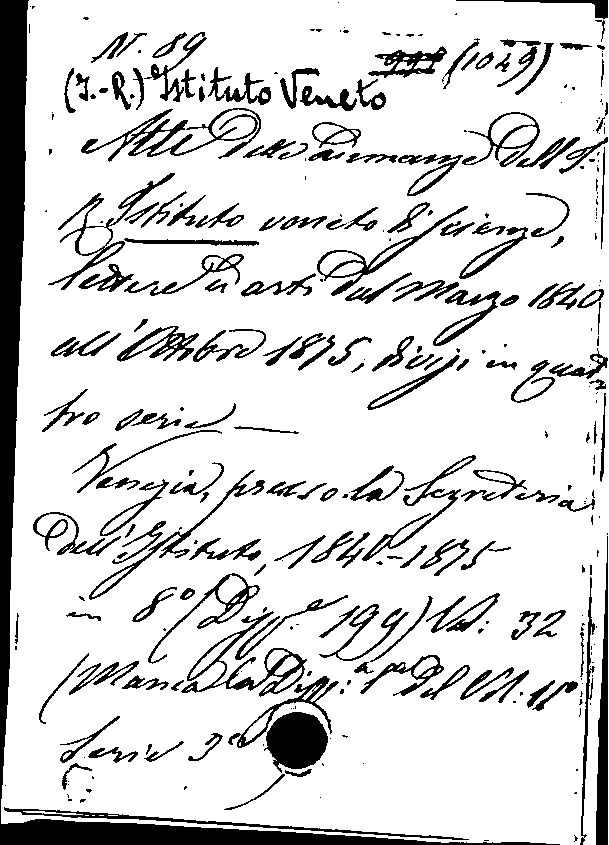 N. 89 991 (1049)
(I.-R.) Istituto Veneto
Atti delle adunanze dell' I.
R. Istituto veneto di scienze,
lettere ed arti dal Marzo 1840
all' Ottobre 1875, divisi in quat
tro serie —
Venezia, presso la Segreteria
dell' Istituto, 1840-1875
in 8° (Disp.e 199) Vol: 32
(Manca la Disp: 1a del Vol: 11°
Serie 3a